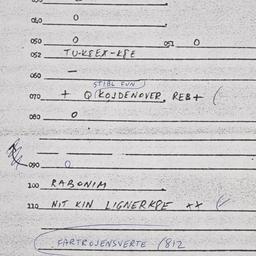 040 0
050 0 051 0
052 TU-KSEX-KSE
060 —
STIBL FUN
070 + Q (KOJDENOVER, REB+ (
080 0
090 0
100 RABONIM
110 NIT KIN LIGNERKPE xx
FARTROJENSVERTE /812